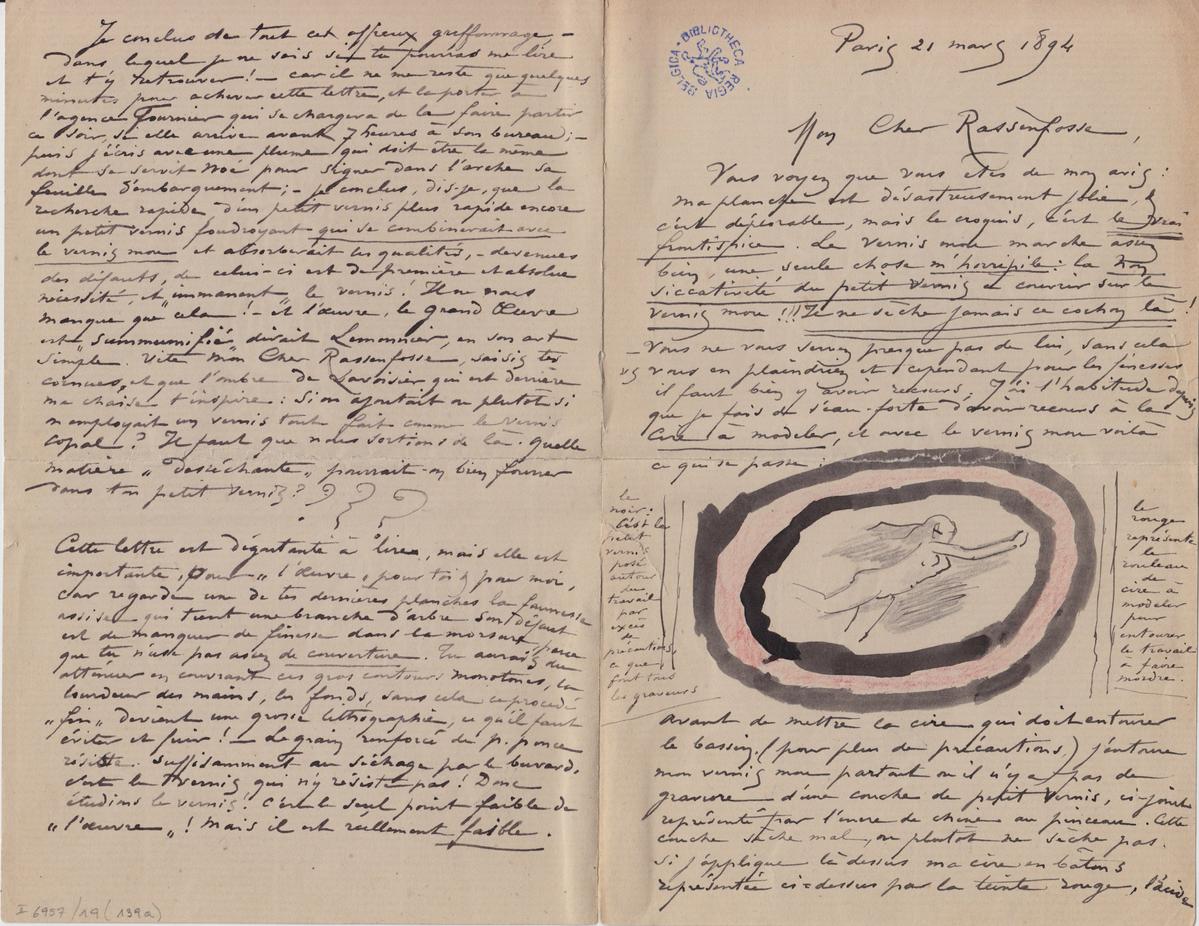 Paris 21 mars 1894
BIBLIOTHECA REGIA BELGICA
Mon Cher Rassenfosse,
Vous voyez que vous êtes de mon avis :
ma planche est désastreusement jolie,
c'est déplorable, mais le croquis, c'est le vrai
frontispice. Le vernis mou marche assez
bien, une seule chose m'horripile : la non
siccativité du petit vernis à couvrir sur le
vernis mou !!! Il ne sèche jamais ce cochon là !
– Vous ne vous servez presque pas de lui, sans cela
vous vous en plaindriez et cependant pour les finesses
il faut bien y avoir recours, J'ai l'habitude depuis
que je fais de l'eau-forte d'avoir recours à la
cire à modeler, et avec le vernis mou voilà
ce qui se passe :
le
noir :
c'est le
petit
vernis
posé
autour
du
travail
par
excès
de
précautions,
ce que
font tous
les graveurs
le
rouge
représente
le
rouleau
de
cire à
modeler
pour
entourer
le travail
à faire
mordre.
avant de mettre la cire qui doit entourer
le bassin, (pour plus de précautions) j'entoure
mon vernis mou partout où il n'y a pas de
gravure d'une couche de petit vernis, ci-joint
représenté par l'encre de chine au pinceau. Cette
couche sèche mal, ou plutôt ne sèche pas.
Si j'applique là dessus ma cire en bâtons
représentée ci-dessus par la teinte rouge, l'acide
Je conclus de tout cet affreux griffonnage, –
dans lequel je ne sais si tu pourras me lire
et t'y retrouver ! – car il ne me reste que quelques
minutes pour achever cette lettre, et la porter à
l'agence Fournier qui se chargera de la faire partir
ce soir, si elle arrive avant 7 heures à son bureau ; –
puis j'écris avec une plume qui doit être la même
dont se servit Noé pour signer dans l'arche sa
feuille d'embarquement ; – je conclus, dis-je, que la
recherche rapide d'un petit vernis plus rapide encore
un petit vernis foudroyant qui se combinerait avec
le vernis mou et absorberait les qualités, – devenues
des défauts, de celui-ci est de première et absolue
nécessité, et „immanent„ le vernis ! Il ne nous
manque que cela ! – et l'œuvre, le grand Œuvre
est „summumifié„ dirait Lemonnier, en son art
simple. Vite mon Cher Rassenfosse, saisis tes
cornues, et que l'ombre de Lavoisier qui est derrière
ma chaise t'inspire : Si on ajoutait ou plutôt si
on employait un vernis tout fait comme le vernis
copal ? Il faut que nous sortions de là. Quelle
matière „desséchante„ pourrait-on bien fourrer
dans ton petit vernis ? ? ? ?
Cette lettre est dégoutante à lire, mais elle est
importante, pour „l'œuvre, pour toi & pour moi,
Car regarde une de tes dernières planches la faunesse
assise qui tient une branche d'arbre Son défaut
est de manquer de finesse dans la morsure parce
que tu n'use pas assez de couverture. Tu aurais dû
atténuer en couvrant ces gros contours monotones, la
lourdeur des mains, les fonds, sans cela ce procédé
„fin„ devient une grosse lithographie, ce qu'il faut
éviter et fuir ! – Le grain renforcé de p. ponce
résiste suffisamment au séchage par le buvard.
c'est le vernis, qui n'y résiste pas ! Donc
étudions le vernis ! C'est le seul point faible de
„l'œuvre„ ! Mais il est réellement faible.
I 6957/19 (139a)